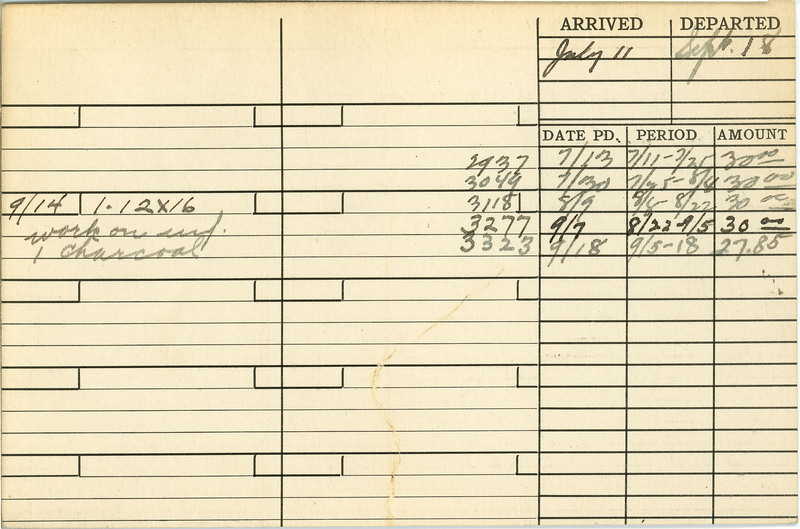 ARRIVED DEPARTED
July 11 Sept. 18
DATE PD. PERIOD AMOUNT
2937 7/13 7/11-7/25 30 00
3049 7/30 7/25-8/8 30 00
9/14 1-12X16 3118 8/9 8/8-8/22 30 00
work on 3277 9/7 8/22-9/5 30 00
1 charcoal 3323 9/18 9/5-18 27.85